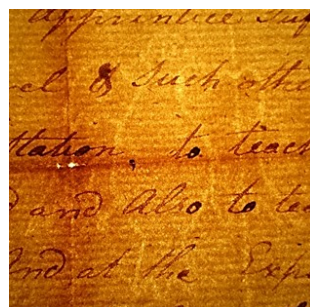 apprentice suf
el & such othe
ttation, to teach
d and Also to tea
And at the Expe